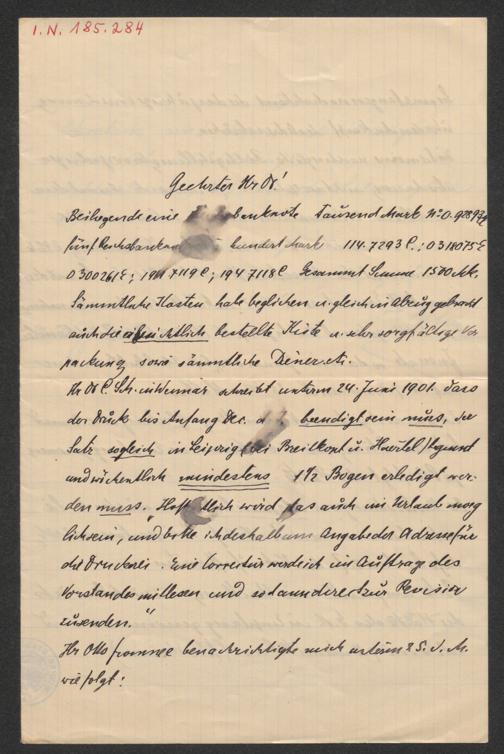 I.N. 185.284
Geehrter Hr Dr!
Beiliegende eine banknote Tausend Mark No 0.
fünf hundert Mark 114.7293C; 0318075E
0300261E; 1947119C; 1947118C Gesammt Summe 1500 Mk.
Sämmtliche Kosten habe beglichen u. gleich in Abzug gebracht
auch die bestellte Kiste u. sehr sorgfältige Ver
packung sowie sämmtliche
Hr Dr C. Sch. in Weimar schreibt unterm 24. Juni 1901. dass
der Druck bis Anfang Dec. d beendigt sein muss, der
Satz sogleich in Leipzig bei Breitkopf u. Haertel beginnt
und wöchentlich mindestens 1 1/2 Bogen erledigt wer-
den muss. Hoffentlich wird das auch im Urlaub moeg
lich sein, und bitte ich deshalb um Angabe der Adresse für
die Druckerei. Eine Correctur werde ich im Auftrage des
Vorstandes mitlesen und sodann direct zur Revision
zusenden."
Hr Otto benachrichtigte mich unterm 25. d. M.
wie folgt: